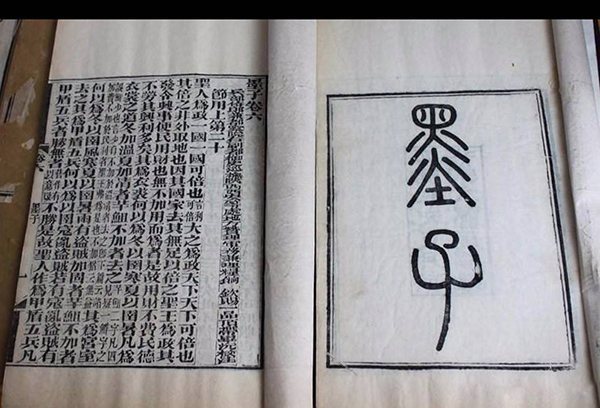 墨子卷六
節用上第二十
聖人爲政一國一國可倍也大之爲政天下天下可倍也
其倍之非外取地也因其國家去其無足以倍之聖王爲政其
發令興事使民用財也無不加用而爲者是故用財不費民德
不勞其興利多矣其爲衣裘何以爲冬以圉寒夏以圉暑凡爲
衣裳之道冬加溫夏加凊者芊䱉不加者去之
其爲宮室
何以爲冬以圉風寒夏以圉暑雨有盜賊加固者芊䱉不加者
去之其爲甲盾五兵何以爲以圉寇亂盜賊若有寇亂盜賊有
甲盾五兵者勝無者不勝是故聖人作爲甲盾五兵凡
墨子
墨子